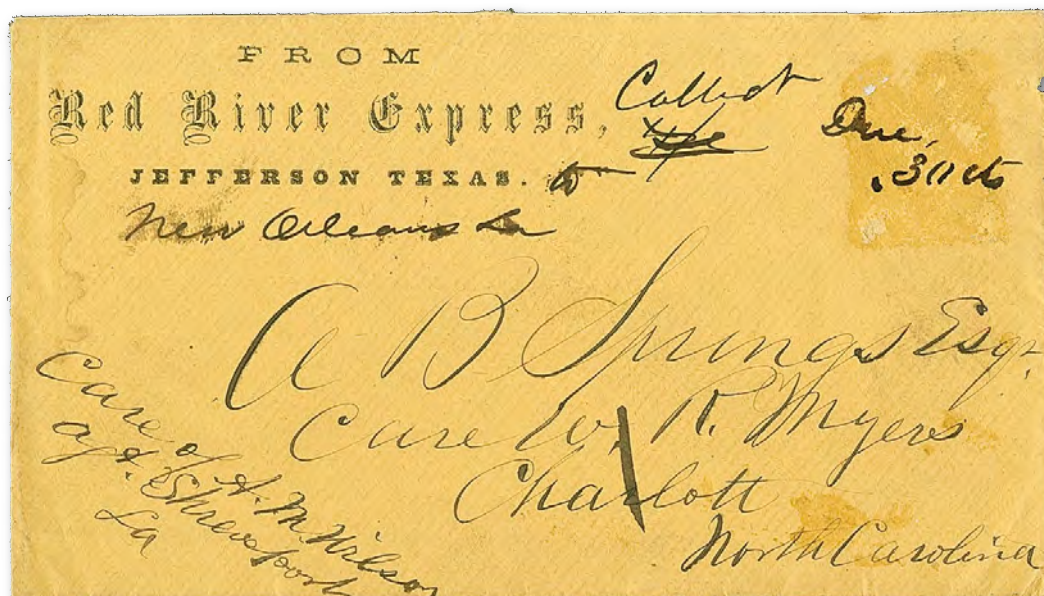 FROM
Red River Express,
JEFFERSON TEXAS. to
New Orleans La
Collect
Due,
.30 cts
A B Springs Esqr
Care W. R. Myers
Charlott
North Carolina
Care of A. M. Wilson
agt. Shreveport
La